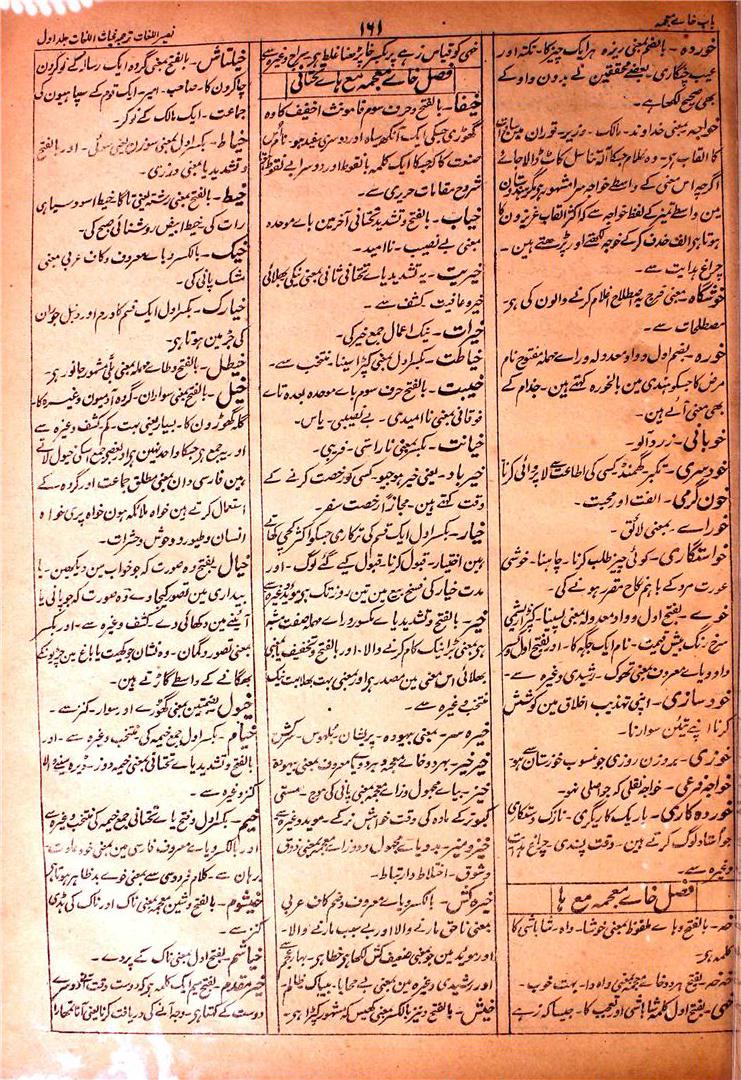 باب خائے معجمہ
۱۶۱
نصیر اللغات ترجمہ غیاث اللغات جلد اول
خوردہ۔ بالضم بمعنی ریزہ ہر ایک چیز کا۔ نکتہ اور
عیب چنگاری۔ بعضے محققین نے بدون واو کے
بھی صحیح لکھا ہے۔
خواجہ بمعنی خداوند۔ مالک۔ وزیر۔ توران مین سادات
کا القاب ہے۔ وہ غلام جسکا آلۂ تناسل کاٹ ڈالا جائے
اگرچہ اس معنی کے واسطے خواجہ سرا مشہور ہے مگر ہندوستان
مین واسطے تمیز کے لفظ خواجہ سے کہ اکثر القاب عزیزون کا
ہوتا ہے الف حذف کرکے خوجہ لکھتے اور پڑھتے ہین۔
چراغ ہدایت سے۔
خوشگاہ بمعنی فرج یہ اصطلاح اغلام کرنے والون کی ہے۔
مصطلحات سے۔
خورہ۔ بضم اول و واو معدولہ و رائے مہملہ مفتوح نام
مرض کا جسکو ہندی مین بالخورہ کہتے ہین۔ جذام کے
بھی معنی آئے ہین۔
خوبانی۔ زرد آلو۔
خودسری۔ تکبر گھمنڈ کسی کی اطاعت سے لاپروائی کرنا
خون گرمی۔ الفت اور محبت۔
خورائے۔ بمعنی لائق۔
خواستگاری۔ کوئی چیز طلب کرنا۔ چاہنا۔ خوشی
عورت مرد کے باہم نکاح مقرر ہونے کی۔
خوے۔ بفتح اول و واو معدولہ بمعنی پسینا۔ کپڑا ریشمی
سرخ رنگ بیش قیمت۔ نام ایک جگہ کا۔ اور بفتح اول و
واو و یائے معروف بمعنی تھوک۔ رشیدی وغیرہ سے۔
خود سازی۔ اپنی تہذیب اخلاق مین کوشش
کرنا اپنے تئین سوارنا۔
خوزی۔ بروزن روزی جو منسوب خوزستان سے ہو
خواجہ فرعی۔ خواجہ نقلی کہ جو اصلی نہو۔
خوردہ کاری۔ باریک کاریگری۔ نازک دستکاری
جو استاد لوگ کرتے ہین۔ دقت پسندی۔ چراغ ہدایت
وغیرہ سے۔
فصل خائے معجمہ مع ہا
خہ۔ بالفتح و ہائے ملفوظ بمعنی خوشا۔ واہ۔ شاباشی کا
کلمہ ہے۔
خہ خہ۔ بفتح ہر دو خائے معجمہ بمعنی واہ وا۔ بہت خوب۔
خہی۔ بفتح اول کلمۂ شاباشی اور تعجب کا۔ جیسا کہ زہے
خہی کو قیاس زہے پر بکسر خا پڑھنا غلط ہے۔ سراج وغیرہ سے
فصل خائے معجمہ مع یائے تحتانی
خیفا۔ بالفتح و حرف سوم فا مونث اخیف کا وہ
گھوڑی جسکی ایک آنکھ سیاہ اور دوسری سفید ہو۔ نام اس
صنعت کا کہ جسکا ایک کلمہ با نقوط اور دوسرا بے نقوط آتا
شروح مقامات حریری سے۔
خیاب۔ بالفتح و تشدید تحتانی آخر مین بائے موحدہ
بمعنی بے نصیب۔ ناامید۔
خیریت۔ بہ تشدید یائے تحتانی ثانی بمعنی نیکی بھلائی
خیر و عافیت کشف سے۔
خیرات۔ نیک اعمال جمع خیر کی۔
خیاطت۔ بکسر اول بمعنی کپڑا سینا۔ منتخب سے۔
خیبت۔ بالفتح حرف سوم بائے موحدہ بعدہ تائے
فوقانی بمعنی نا امیدی۔ بے نصیبی۔ یاس۔
خیانت۔ بکسر بمعنی ناراستی۔ فریبی۔
خیر باد۔ یعنی خیر ہو جیو۔ کسی کو رخصت کرنے کے
وقت کہتے ہین۔ مجازاً رخصت سفر۔
خیار۔ بکسر اول ایک قسم کی ترکاری جسکو اکثر کچی کھاتے
ہین اختیار۔ قبول کرنا۔ قبول کیے گئے لوگ۔ اور
مدت خیار کی فسخ بیع مین تین روز تک ہے موید وغیرہ سے
خیر۔ بالفتح و تشدید یائے مکسور و رائے مہملہ صفت مشبہ
ہے بمعنی بڑا نیک کام کرنے والا۔ اور بالفتح و تخفیف یا بمعنی
بھلائی اس معنی مین مصدر ہے اور بمعنی بہت بھلا بہت نیک
منتخب وغیرہ سے۔
خیرہ سر۔ بمعنی بیہودہ۔ پریشان۔ سرکش
خیر خیر۔ بہر دو خائے معجمہ و ہر دو یا معروف بمعنی بیہودہ
خیز۔ بیائے مجہول و زائے معجمہ بمعنی پانی کی موج۔ مستی
کبوتر کے مادہ کی وقت خواہش نر کے۔ موید وغیرہ سے
خیز و میز۔ بہ دو یائے مجہول و دو زائے معجمہ بمعنی ذوق
و شوق۔ اختلاط و ارتباط۔
خیرہ کش۔ بالکسر و یائے معروف و ضم کاف عربی
بمعنی ناحق مارنے والا۔ اور بے سبب مارنے والا۔
اور موید مین جو بمعنی ضعیف کش لکھا ہے خطا ہے۔ بہار عجم سے
اور رشیدی وغیرہ مین بمعنی بے محابا۔ بیباک ظالم
خیش۔ بالفتح و نیز بالکسر بمعنی کھیس کہ مشہور کپڑا ہے۔
خیلتاش۔ بالفتح بمعنی گروہ ایک رسالہ کے نوکرون
چاکرون کا۔ صاحب۔ امیر۔ ایک قوم کے سپاہیون کی
جماعت۔ ایک مالک کے نوکر۔
خیاط۔ بکسر اول بمعنی سوزن یعنی سوئی۔ اور بالفتح
و تشدید یا بمعنی درزی۔
خیط۔ بالفتح بمعنی رشتہ یعنی تاگا خیط اسود سیاہی
رات کی خیط ابیض روشنائی صبح کی۔
خیک۔ بالکسر و یائے معروف و کاف عربی بمعنی
مشک پانی کی۔
خیارک۔ بکسر اول ایک قسم کا ورم اور دنبل جو ران
کی جڑ مین ہوتا ہے۔
خیطل۔ بالفتح و طائے مہملہ بمعنی بلی مشہور جانور ہے۔
خیل۔ بالفتح بمعنی سواران۔ گروہ آدمیون وغیرہ کا۔
گلہ گھوڑون کا۔ بسیار یعنی بہت۔ کم کشف وغیرہ سے
اور یہ جمع ہے جسکا واحد نہین ہے اور بعضے جمع اسکی خیول لاتے
ہین فارسی دان بمعنی مطلق جماعت اور گروہ کے۔
استعمال کرتے ہین خواہ ملائکہ ہون خواہ پری خواہ
انسان و طیور و وحوش و حشرات۔
خیال۔ بفتح وہ صورت کہ جو خواب مین دیکھین۔ یا
بیداری مین تصور کیجاوے۔ وہ صورت کہ جو پانی یا
آئینے مین دکھائی دے۔ کشف وغیرہ سے۔ اور بکسر
بمعنی تصور و گمان۔ وہ نشان جو کھیت یا باغ مین چڑیونکے
بھگانے کے واسطے گاڑتے ہین۔
خیول بضمتین بمعنی گھوڑے اور سوار۔ کنز سے۔
خیام۔ بکسر اول جمع خیمہ کی منتخب وغیرہ سے۔ اور
بالفتح و تشدید یائے تحتانی بمعنی خیمہ دوز۔ ڈیرہ سینے والا
کنز وغیرہ سے۔
خیم۔ بکسر اول و فتح یائے تحتانی جمع خیمہ کی منتخب وغیرہ سے
اور بالکسر و یائے معروف فارسی مین بمعنی خو و عادت۔
برہان سے۔ کلام فردوسی سے بمعنی خوے بد ظاہر ہوتا ہے
خیشوم۔ بالفتح و شین معجمہ بمعنی ناک اور ناک کی ہڈی
کنز سے۔
خیاشم۔ بفتح اول بمعنی ناک کے پردے۔
خیر مقدم۔ بفتح میم ایک کلمہ ہے کہ دوست وقت آنے دوسرے
دوست کے کہتا ہے۔ وجہ آنے کی دریافت کرنا یعنی آنا تمھارا